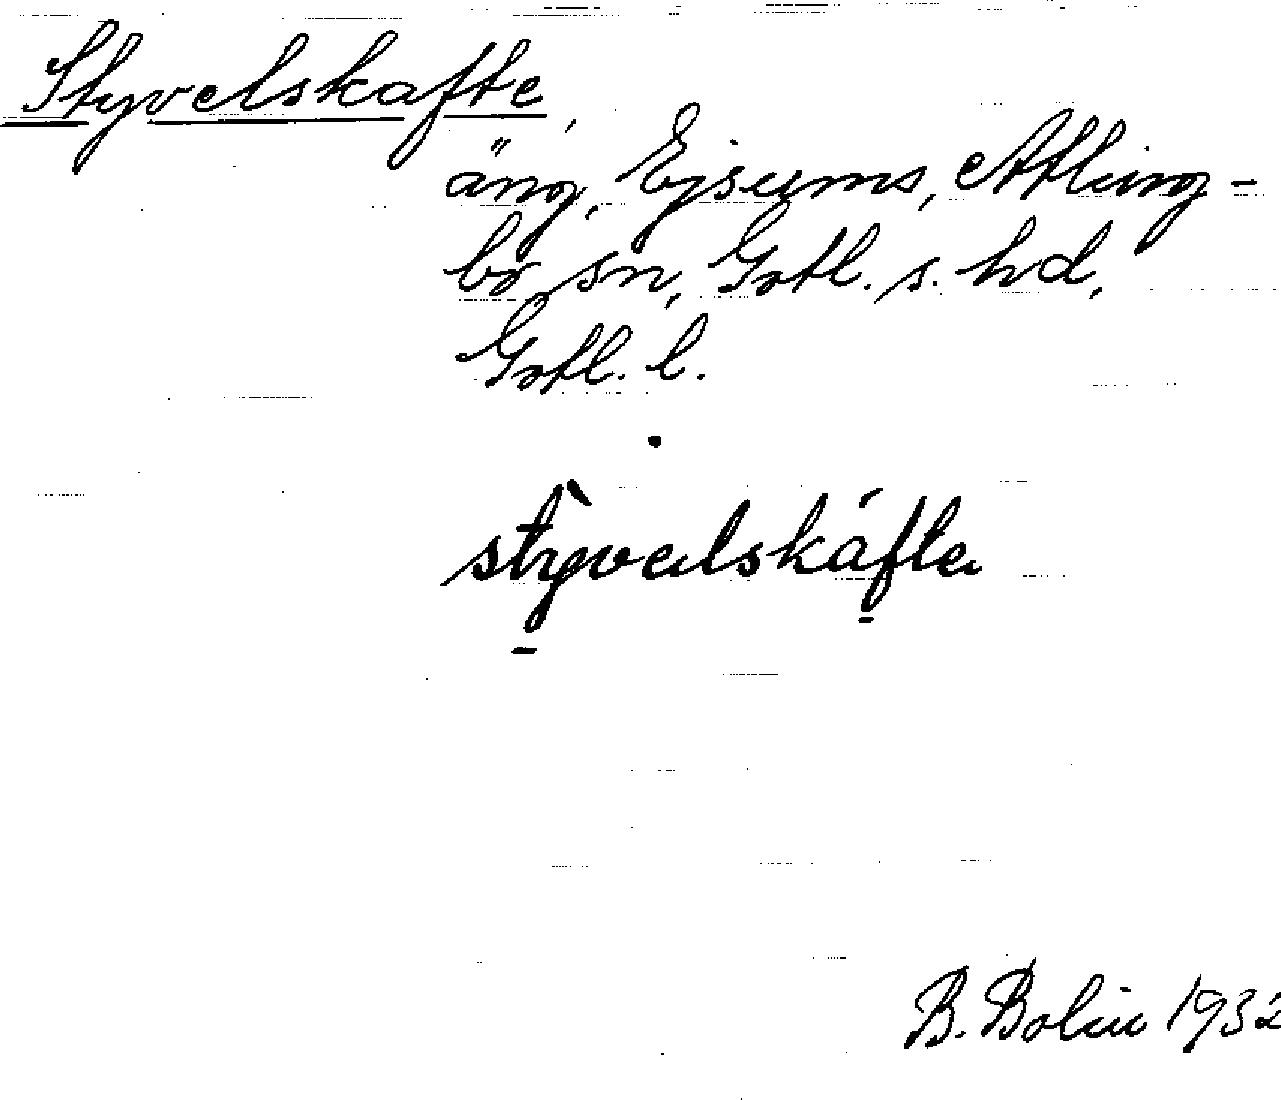 Styvelskafte,
äng, Ejsums, Atling-
bo sn, Gotl. s. hd,
Gotl. l.
stỳvelskáfte
B. Bolin 1932